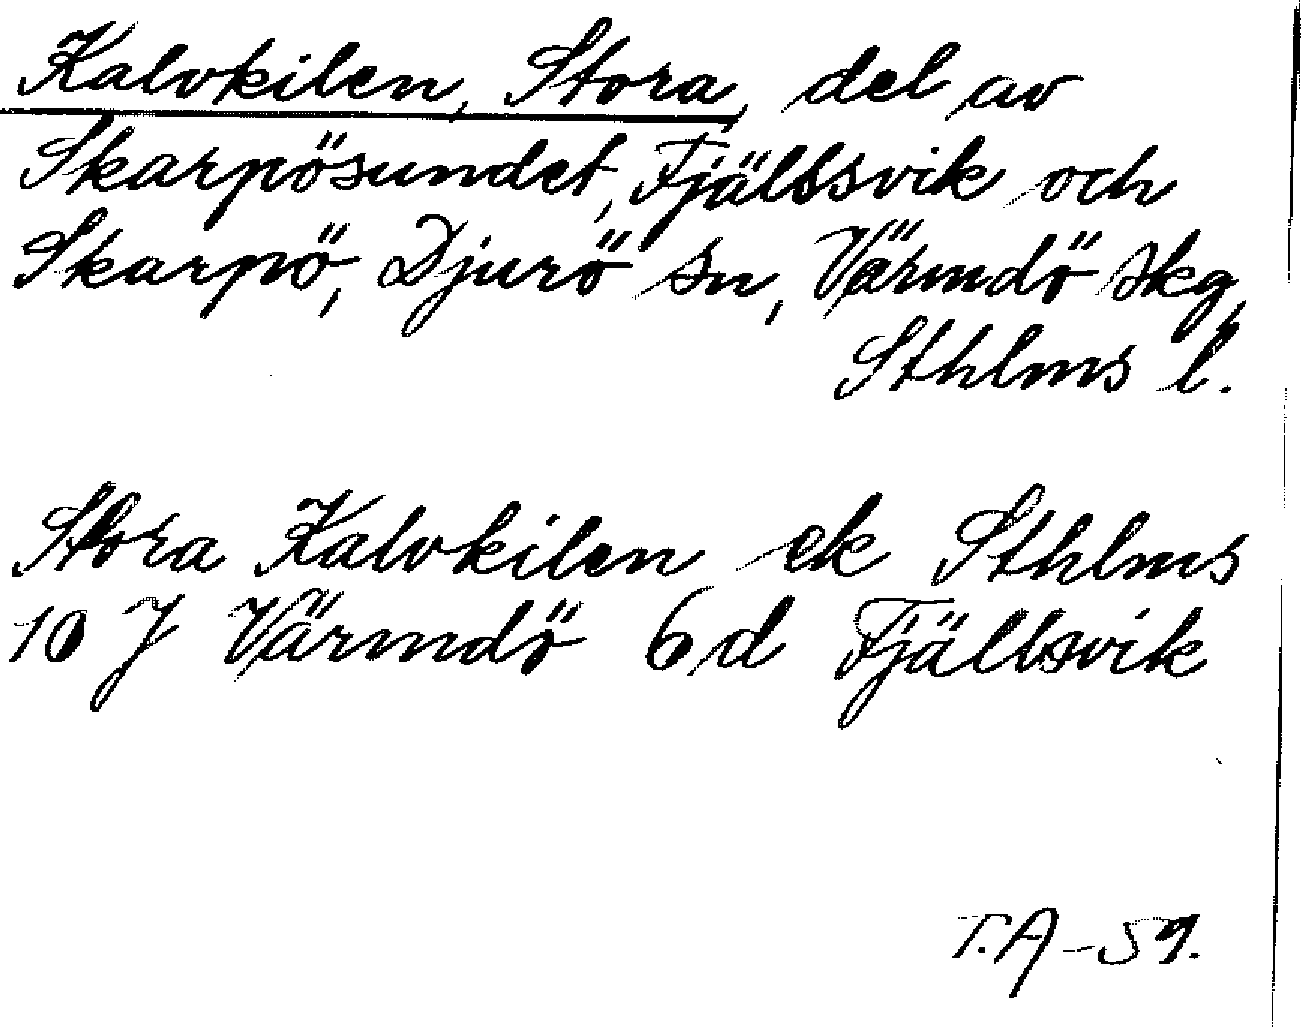 Kalvkilen, Stora, del av
Skarpösundet, Fjällsvik och
Skarpö, Djurö sn, Värmdö skg,
Sthlms l.
Stora Kalvkilen ek Sthlms
10 J Värmdö 6 d Fjällsvik
T.A-59.